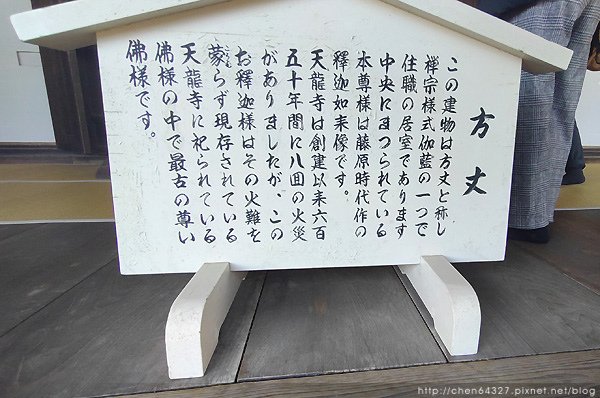 方丈
この建物は方丈と称し
禅宗様式伽藍の一つで
住職の居室であります
中央にまつられている
本尊様は藤原時代作の
釋迦如来像です。
天龍寺は創建以来六百
五十年間に八回の火災
がありましたが、この
お釋迦様はその火難を
蒙らず現存されている
天龍寺に祀られている
佛様の中で最古の尊い
佛様です。
http://chen64327.pixnet.net/blog